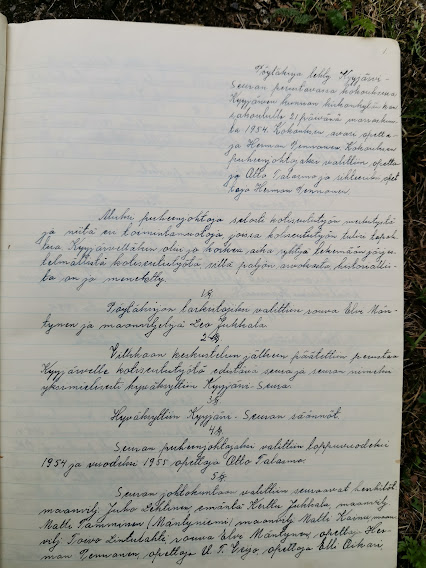 1
Pöytäkirja tehty Kyyjärvi-
Seuran perustavassa kokouksessa
Kyyjärven kunnan kirkonkylän kan-
sakoululla 21 päivänä marraskuu-
ta 1954. Kokouksen avasi opetta-
ja Herman Pennanen. Kokouksen
puheenjohtajaksi valittiin opetta-
ja Otto Talasmo ja sihteeriksi opet-
taja Herman Pennanen.
Aluksi puheenjohtaja selosti kotiseututyön merkitystä
ja niitä eri toimintamuotoja, joissa kotiseututyön tulee tapah-
tua. Kyyjärvelläkin olisi jo korkea aika ryhtyä tekemään järjes-
telmällistä kotiseututyötä, sillä paljon arvokasta kertomatie-
toa on jo menetetty.
1 §.
Pöytäkirjan tarkastajiksi valittiin rouva Elve Män-
tynen ja maanviljelijä Leo Jukkala.
2 §.
Vilkkaan keskustelun jälkeen päätettiin perustaa
Kyyjärvelle kotiseututyötä edistävä seura ja seuran nimeksi
yksimielisesti hyväksyttiin Kyyjärvi-Seura.
3 §.
Hyväksyttiin Kyyjärvi-Seuran säännöt.
4 §.
Seuran puheenjohtajaksi valittiin loppuvuodeksi
1954 ja vuodeksi 1955 opettaja Otto Talasmo.
5 §.
Seuran johtokuntaan valittiin seuraavat henkilöt
maanvilj. Juho Lehtinen, emäntä Kerttu Jukkala, maanvilj.
Matti Tamminen (Mäntyniemi) maanvilj. Matti Kärnä, maan-
vilj. Toivo Lintulahti, rouva Elve Mäntynen, opettaja Her-
man Pennanen, opettaja U. T. opettaja Elli